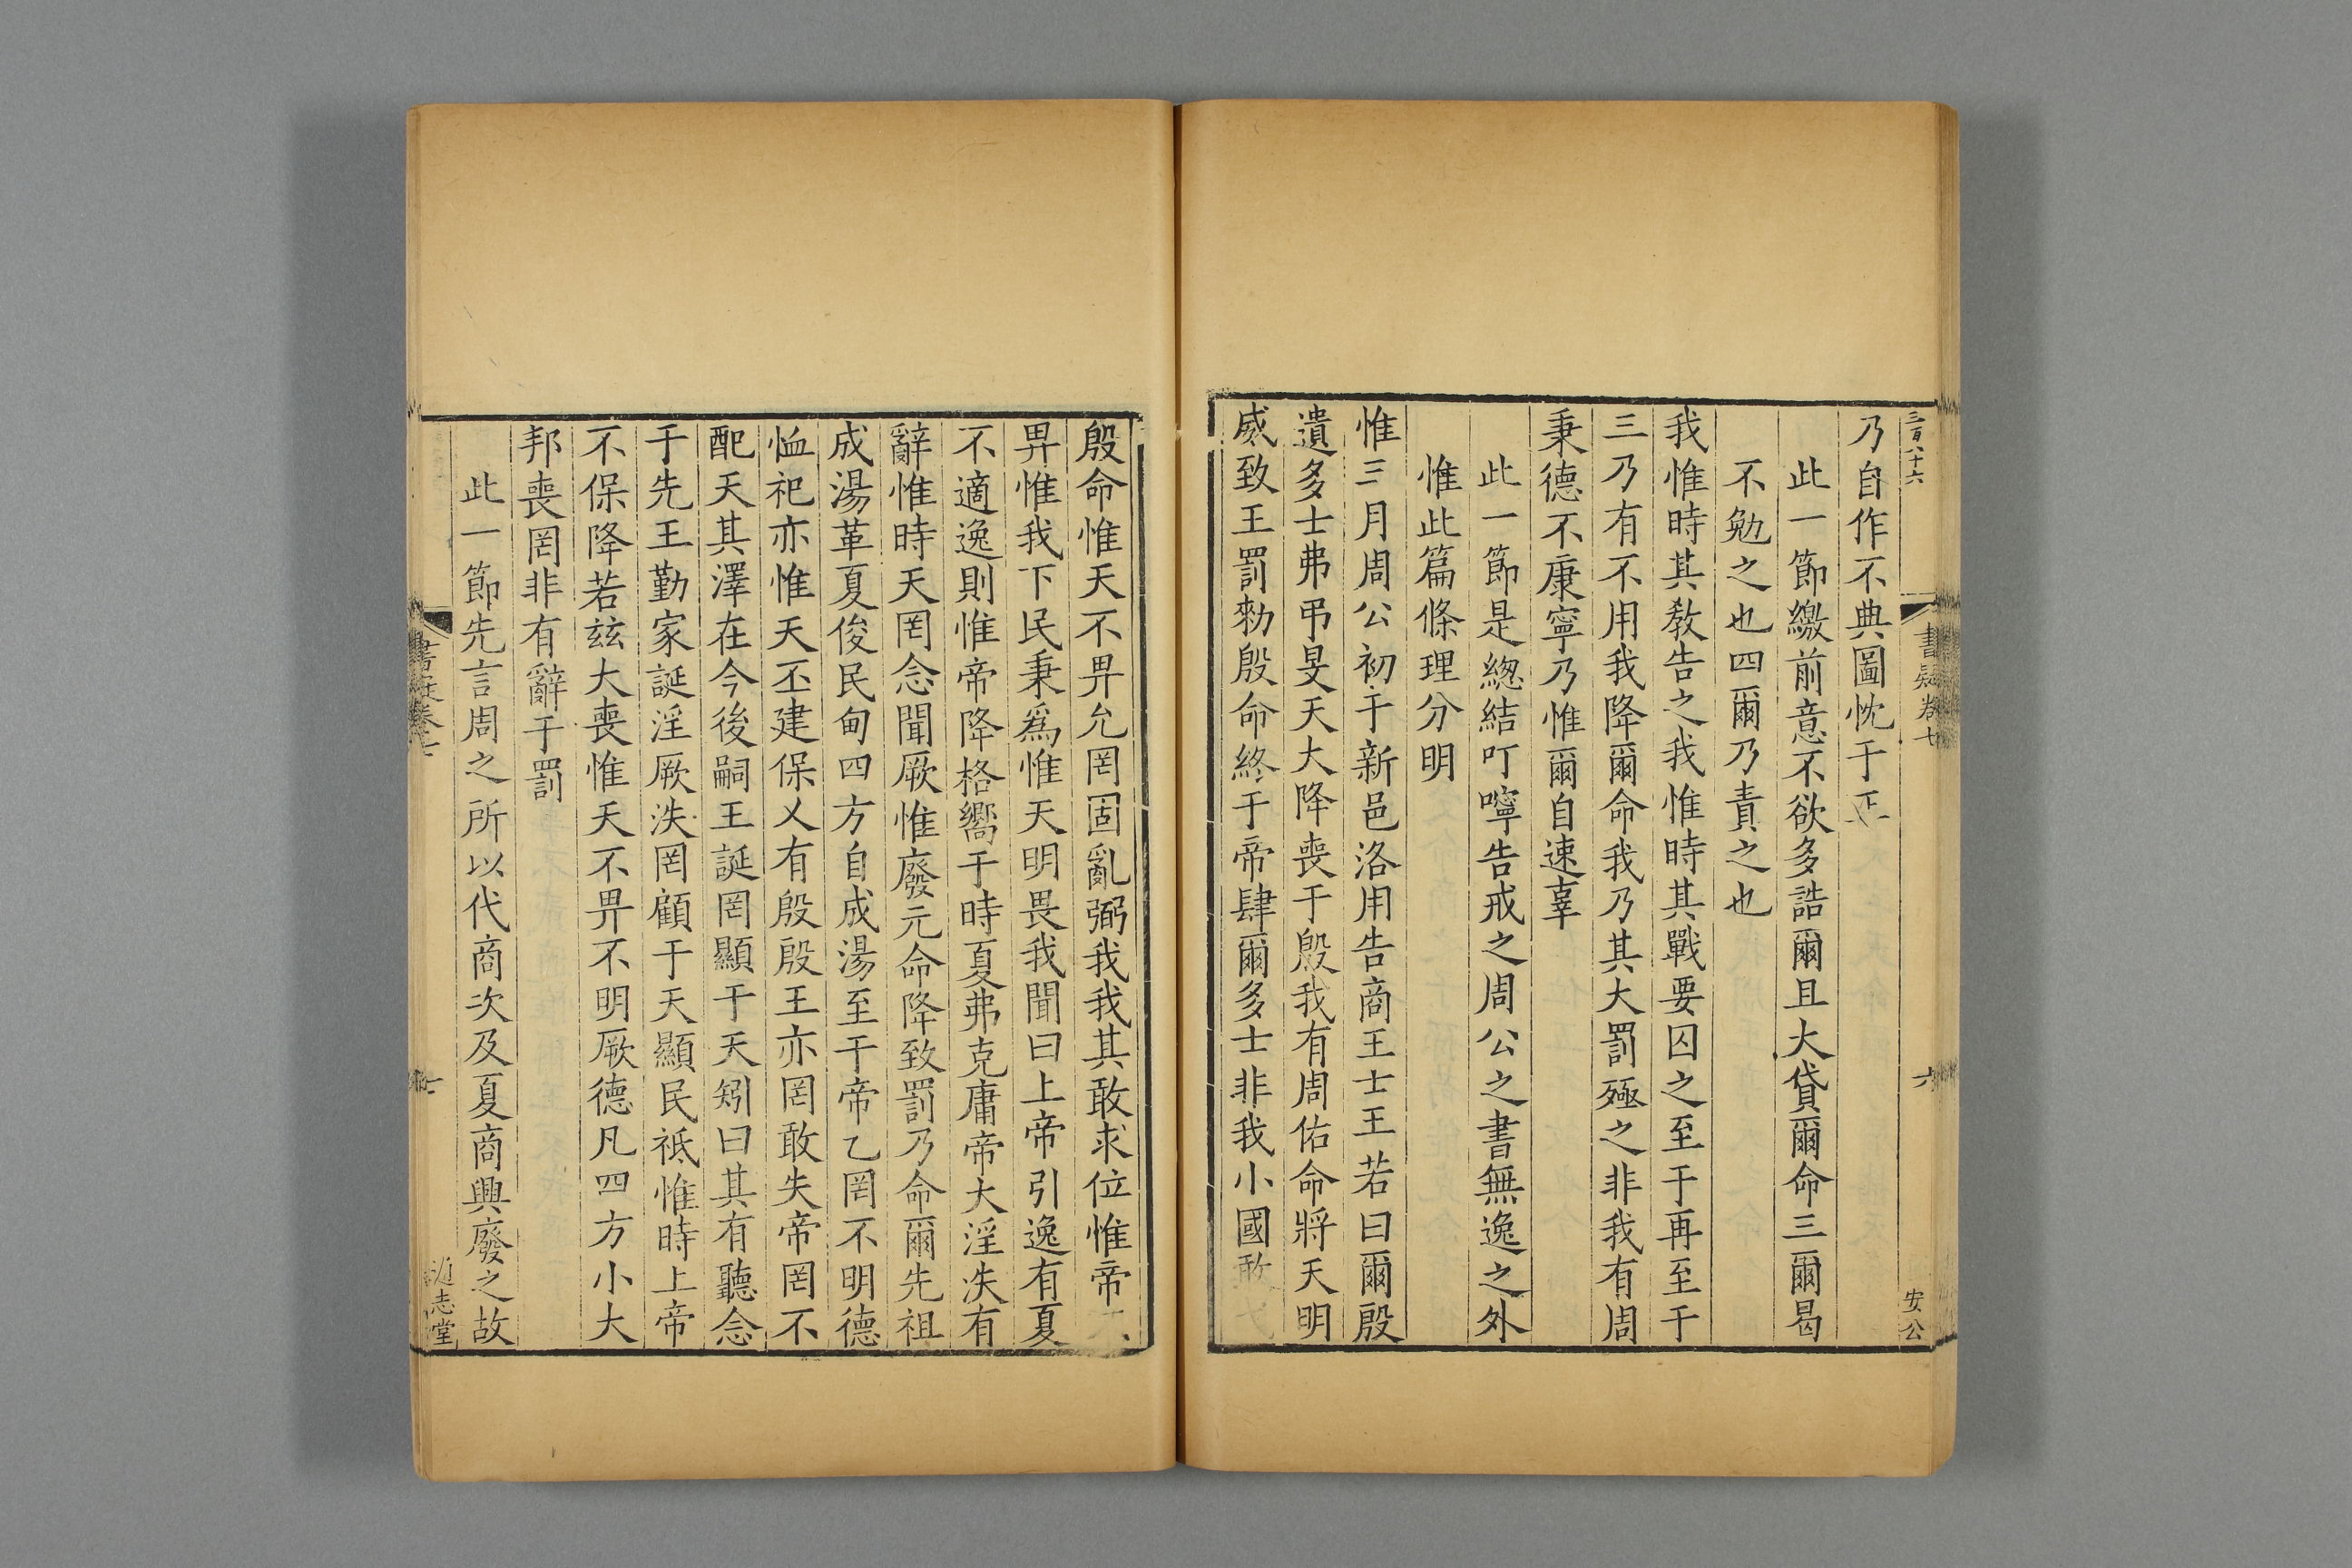 三百八十六
書疑卷七
六
安公
乃自作不典圖忱于正
此一節繳前意不欲多誥爾且大貸爾命三爾曷
不勉之也四爾乃責之也
我惟時其教告之我惟時其戰要囚之至于再至于
三乃有不用我降爾命我乃其大罰殛之非我有周
秉德不康寧乃惟爾自速辜
此一節是緫結叮嚀告戒之周公之書無逸之外
惟此篇條理分明
惟三月周公初于新邑洛用告商王士王若曰爾殷
遺多士弗弔旻天大降喪于殷我有周佑命將天明
威致王罰勑殷命終于帝肆爾多士非我小國敢弋
殷命惟天不畀允罔固亂弼我我其敢求位惟帝不
畀惟我下民秉爲惟天明畏我聞曰上帝引逸有夏
不適逸則惟帝降格嚮于時夏弗克庸帝大淫泆有
辭惟時天罔念聞厥惟廢元命降致罰乃命爾先祖
成湯革夏俊民甸四方自成湯至于帝乙罔不明德
恤祀亦惟天丕建保乂有殷殷王亦罔敢失帝罔不
配天其澤在今後嗣王誕罔顯于天矧曰其有聽念
于先王勤家誕淫厥泆罔顧于天顯民祗惟時上帝
不保降若玆大喪惟天不畀不明厥德凡四方小大
邦喪罔非有辭于罰
此一節先言周之所以代商次及夏商興廢之故
書疑卷七
七
通志堂